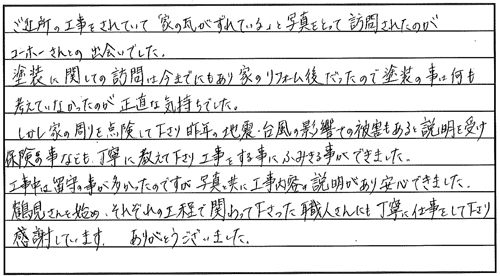 ご近所の工事をされていて 家の瓦がずれている。と写真をとって訪問されたのが
ユーホーさんとの出会いでした。
塗装に関しての訪問は今までにもあり家のリフォーム後だったので塗装の事は何も
考えていなかったのが正直な気持ちでした。
しかし家の周りを点険して下さり昨年の地震・台風の影響での被害もあると説明を受け
保険の事なども、丁寧に教えて下さり工事をする事にふみきる事ができました。
工事中は留守の事が多かったのですが写真と共に工事内容の説明があり安心できました。
鶴見さんを始め、それぞれの工程で関わって下さった職人さんにも丁寧に仕事をして下さり
感謝しています。 ありがとうございました。